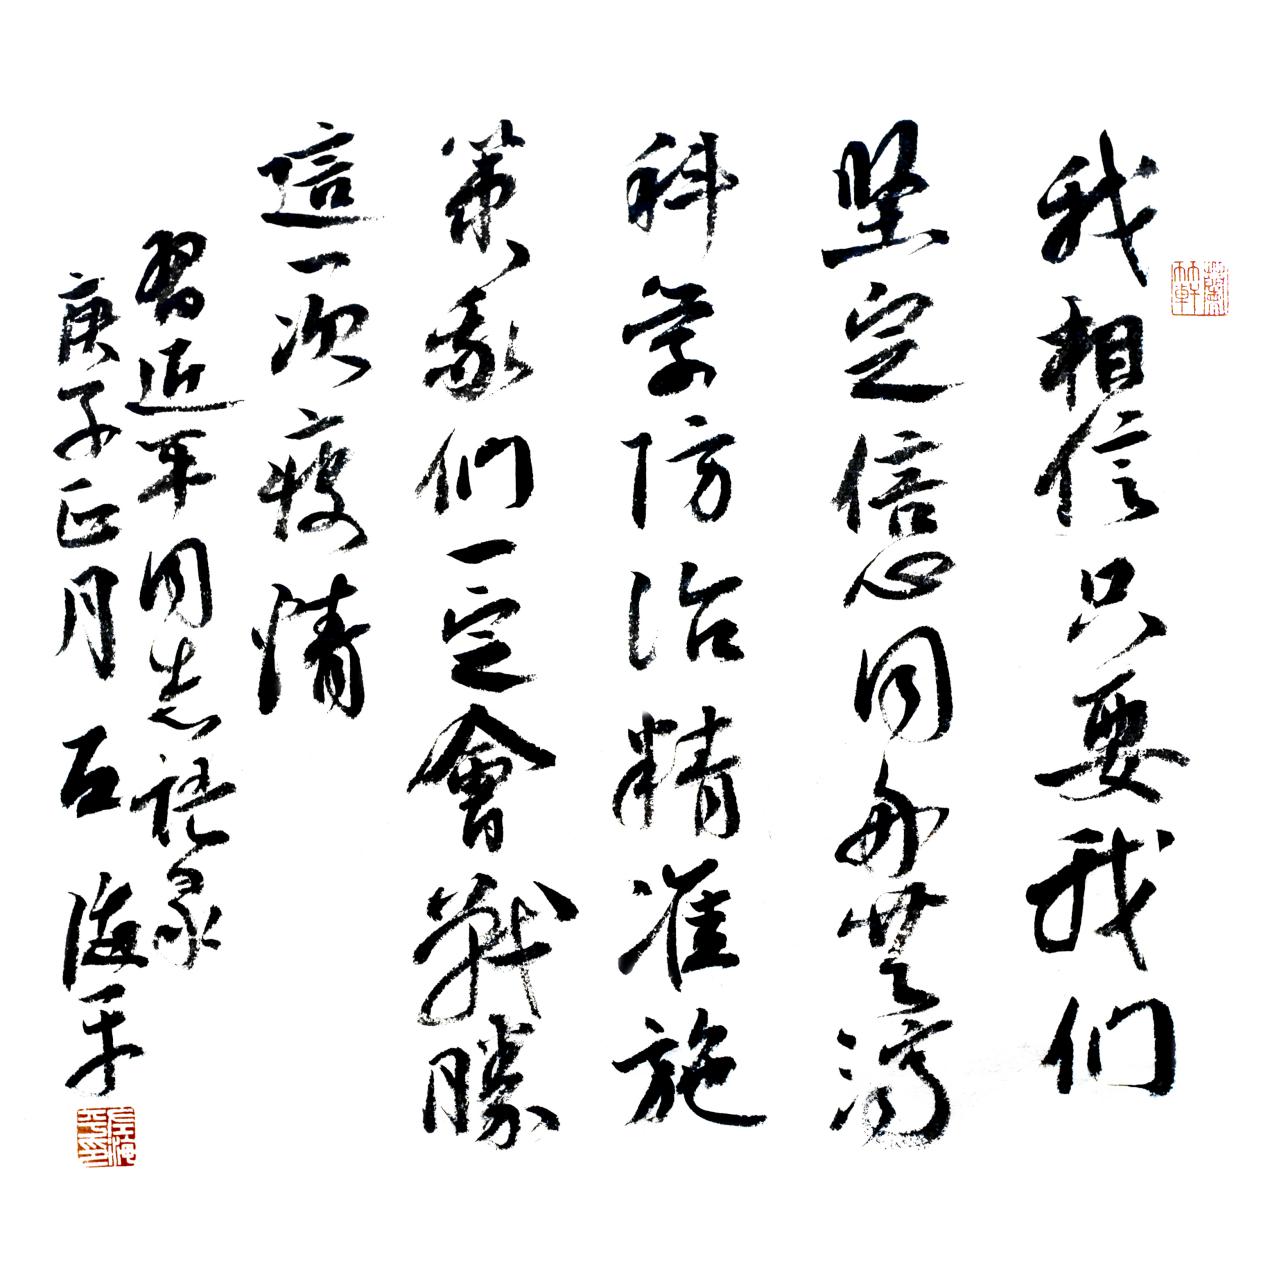 我相信只要我们
坚定信心同舟共济
科学防治精准施
策我们一定會戰勝
這一次疫情
習近平同志語录
庚子正月石海平